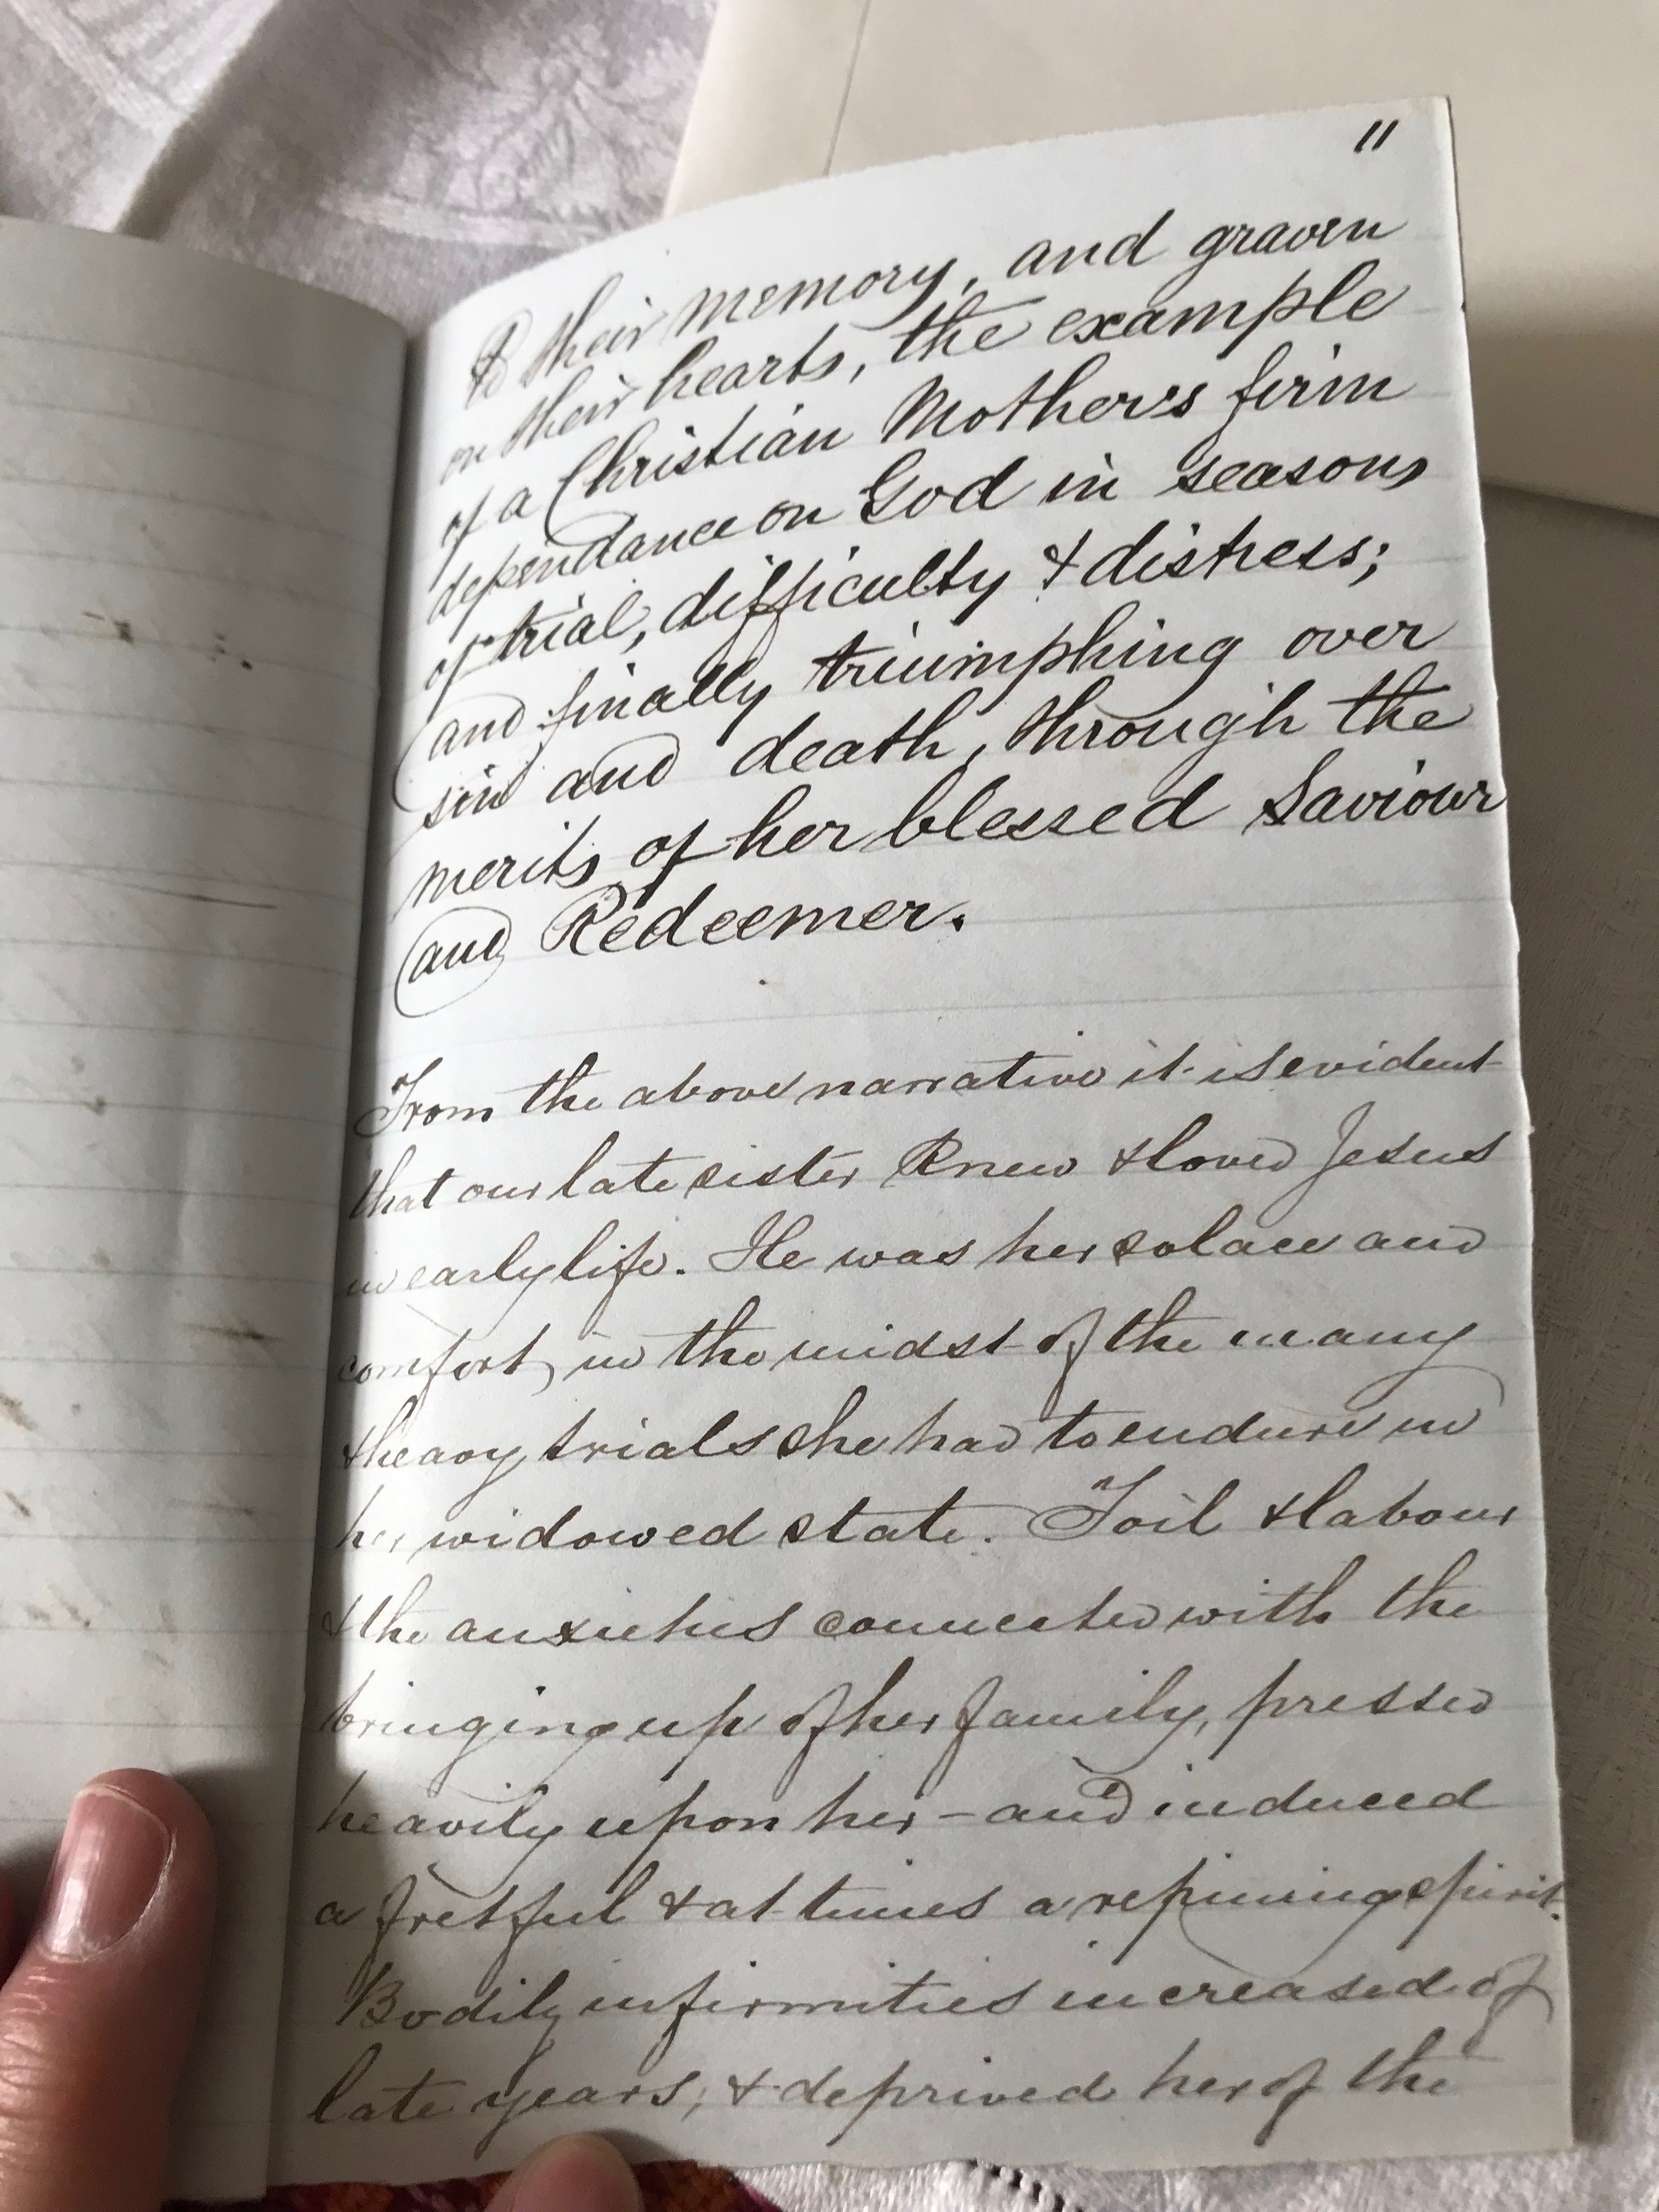 11
to their memory, and graven
on their hearts, the example
of a Christian Mother's firm
dependance on God in seasons
of trial, difficulty & distress;
and finally triumphing over
sin and death, through the
merits of her blessed Saviour
and Redeemer.
From the above narrative it is evident
that our late sister knew & loved Jesus
in early life. He was her solace and
comfort, in the midst of the many
& heavy trials she had to endure in
her widowed state. Toil & labour
& the anxieties connected with the
bringing up of her family, pressed
heavily upon her - and induced
a fretful & at times a repining spirit.
Bodily infirmities increased of
late years, & deprived her of the